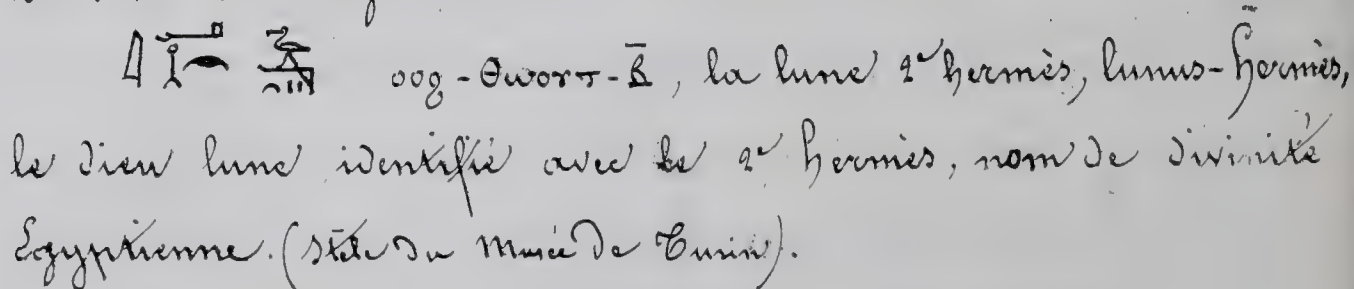 ⲟⲟϩ-ⲑⲱⲟⲩⲧ-ⲃ̄, la lune 2e hermès, lunus-hermès,
le dieu lune identifié avec le 2e hermès, nom de divinité
Egyptienne. (Stèle du Musée de Turin).